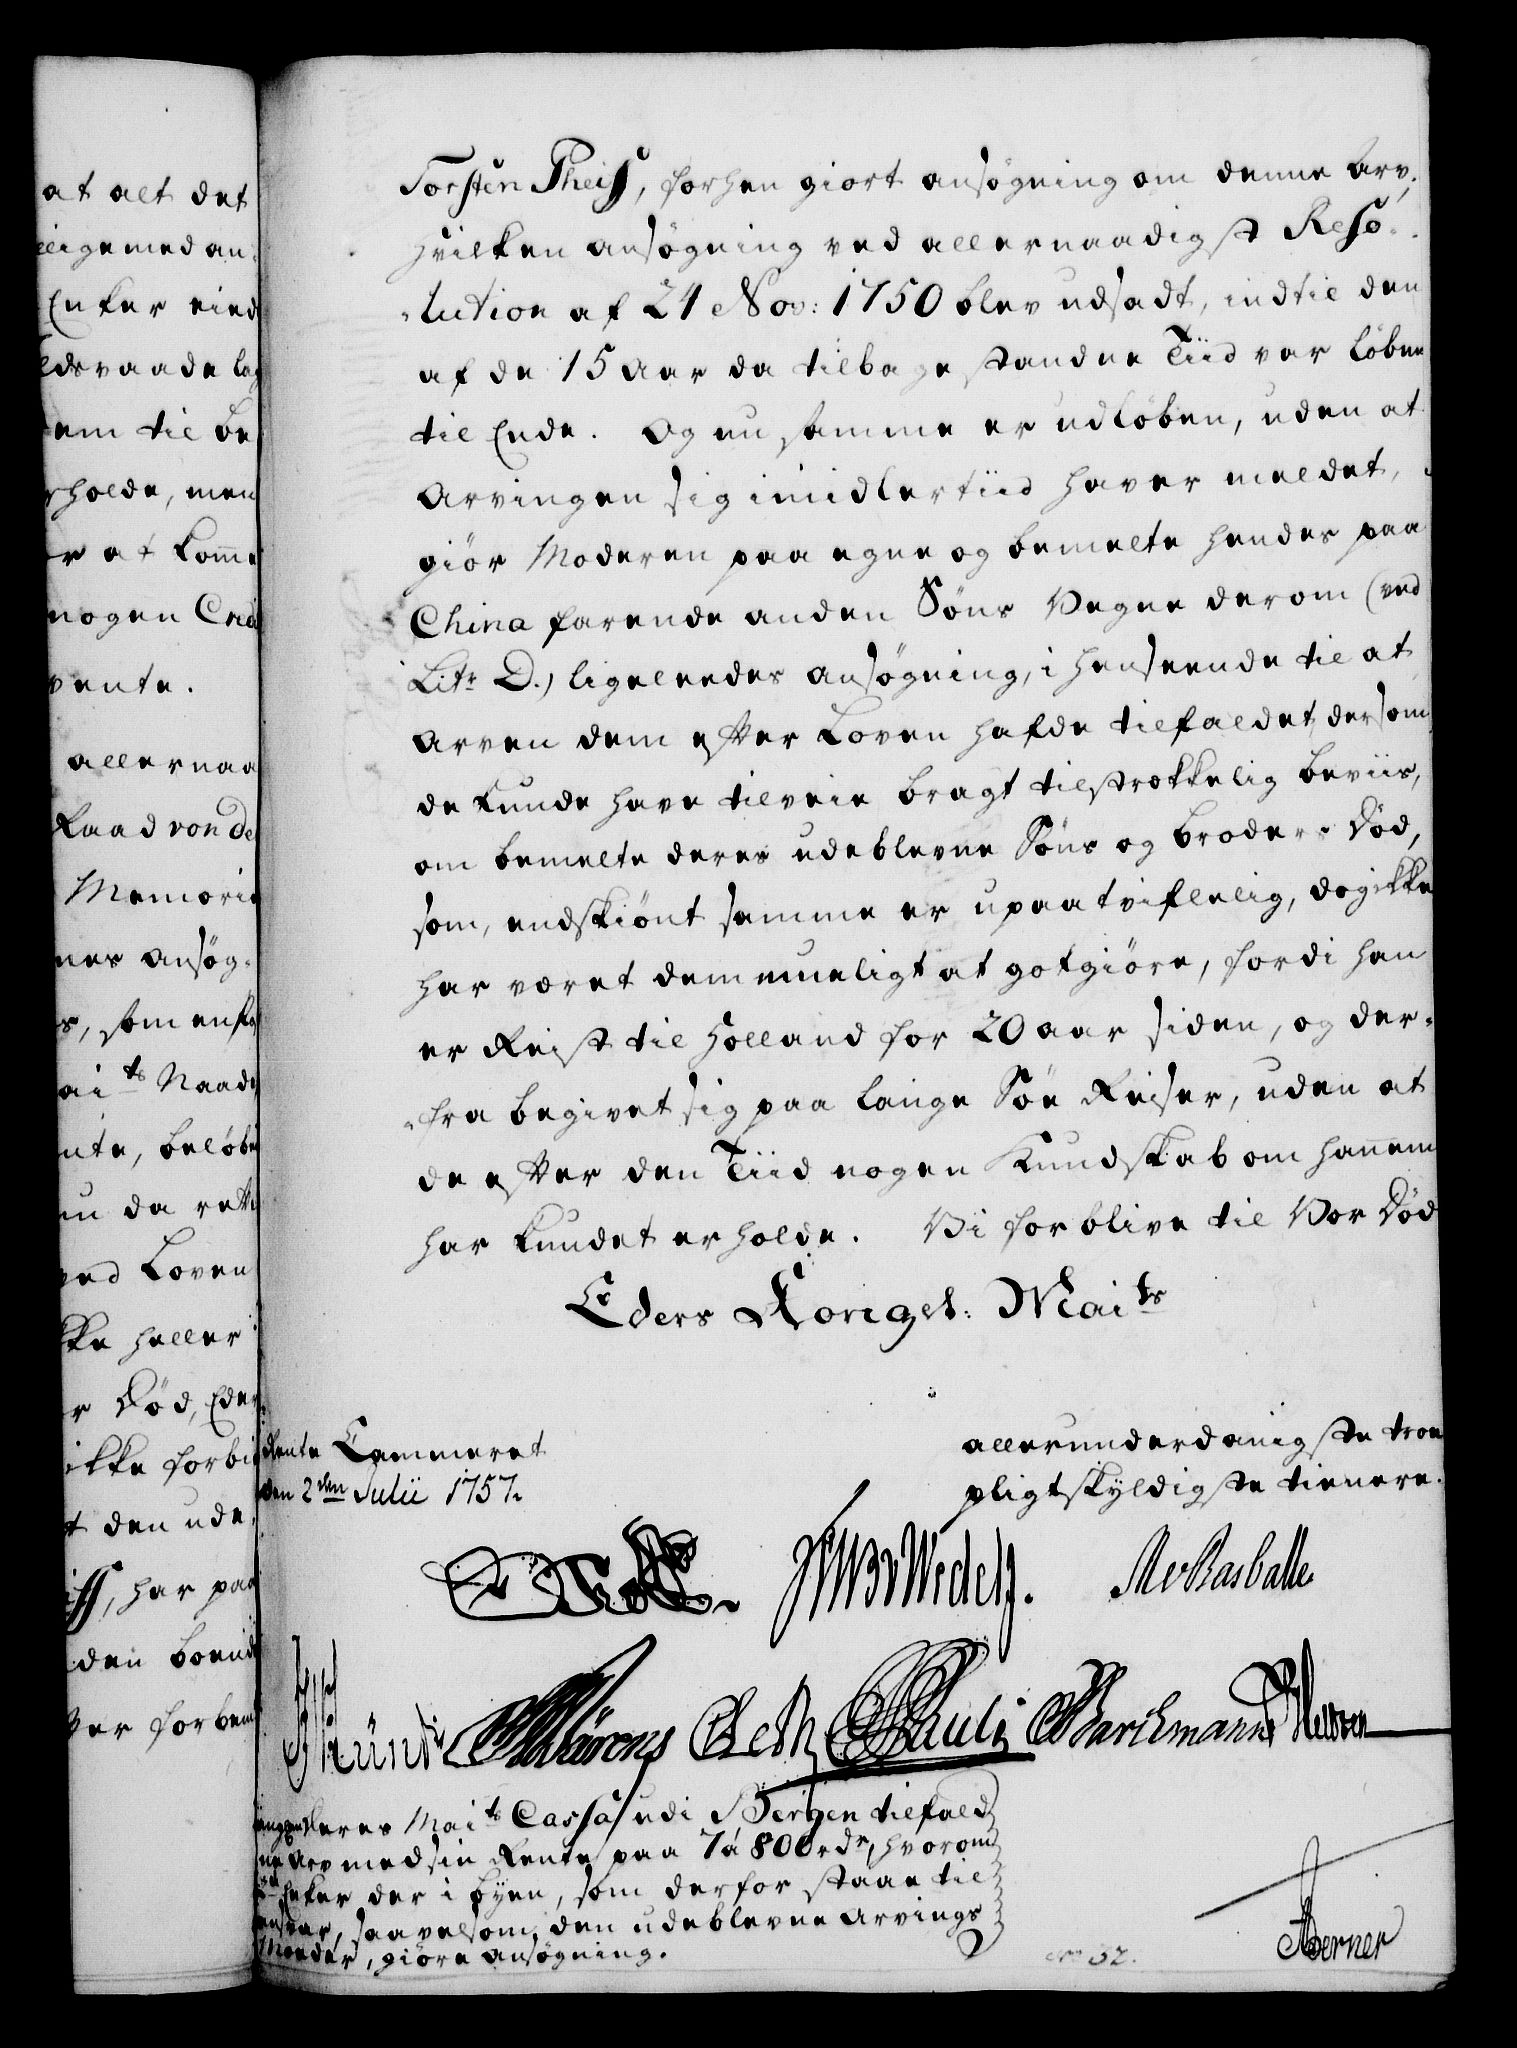 at alt det
ligemedan¬
Enker eied
ldsvaade lag
em til be
holde, men
r at komme
nogen Cred
vente.
allernaa
Raad von de
Memoria
nes ansøg¬
s, som enst
aits Naade
nte, beløbe
nu da rette
ved Loven
kke heller
r Død, Eder
ikke forbi
t den ude¬
iss, har paa
den boend
ter forbem
Torsten Theiss, forhen giort ansøgning om denne Arv;
hvilken ansøgning ved allernaadigst Reso¬
lution af 24 Nov: 1750 blev udsadt, indtil den
af de 15 Aar da tilbage standne Tiid var løben
til Ende. Og nu samme er udløben, uden at
Arvingen sig imidlertiid haver meldet,
giør Moderen paa egne og bemelte hendes paa
China farende anden Søns Vegne derom (ved
Litr D.) ligeleedes ansøgning, i henseende til at
Arven dem efter Loven hafde tilfaldet, dersom
de kunde have tilveie bragt tilstrækkelig beviis,
om bemelte deres udeblevne Søns og broders Død,
som, endskiønt samme er upaatviflelig, dog ikke
har været dem mueligt at gotgiøre, fordi han
er Reist til Holland for 20 aar siden, og der¬
fra begivet sig paa lange Søe Reiser, uden at
de efter den Tiid nogen Kundskab om hannem
har kundet erholde. Vi forblive til Vor Død
Eders Kongel: Maits
allerunderdanigste troe
pligtskyldigste tienere.
Rente Cammeret
den 2den Julii 1757.
Wedel
Rasballe
Paulj
Barchmann
deres Maits Cassa udi Bergen tilfald
ne Arv med sin Rente paa 7 á 800 rdr, hvorom
Enker der i byen, som derfor staae til
ansvar, saavelsom den udeblevne Arvings
Moeder, giøre ansøgning.
no 52.
Berner